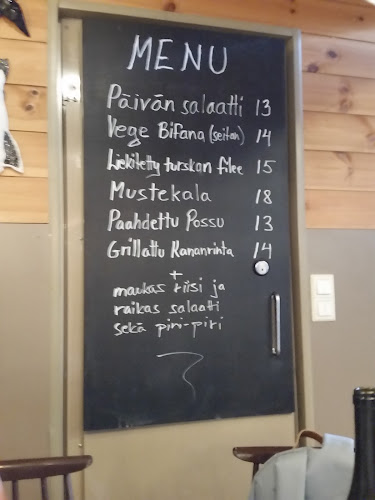 MENU
Päivän salaatti 13
Vege Bifana (seitan) 14
Liekitetty turskan filee 15
Mustekala 18
Paahdettu Possu 13
Grillattu Kananrinta 14
+
maukas riisi ja
raikas salaatti
sekä piri-piri